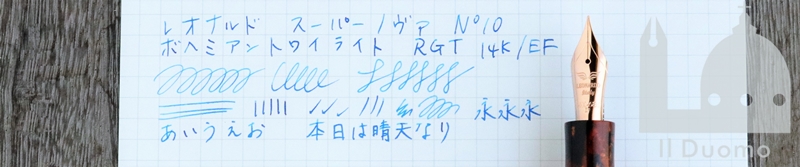 レオナルド スーパーノヴァ Nº10
ボヘミアントワイライト RGT 14K/EF
永永永
あいうえお 本日は晴天なり
Il Duomo